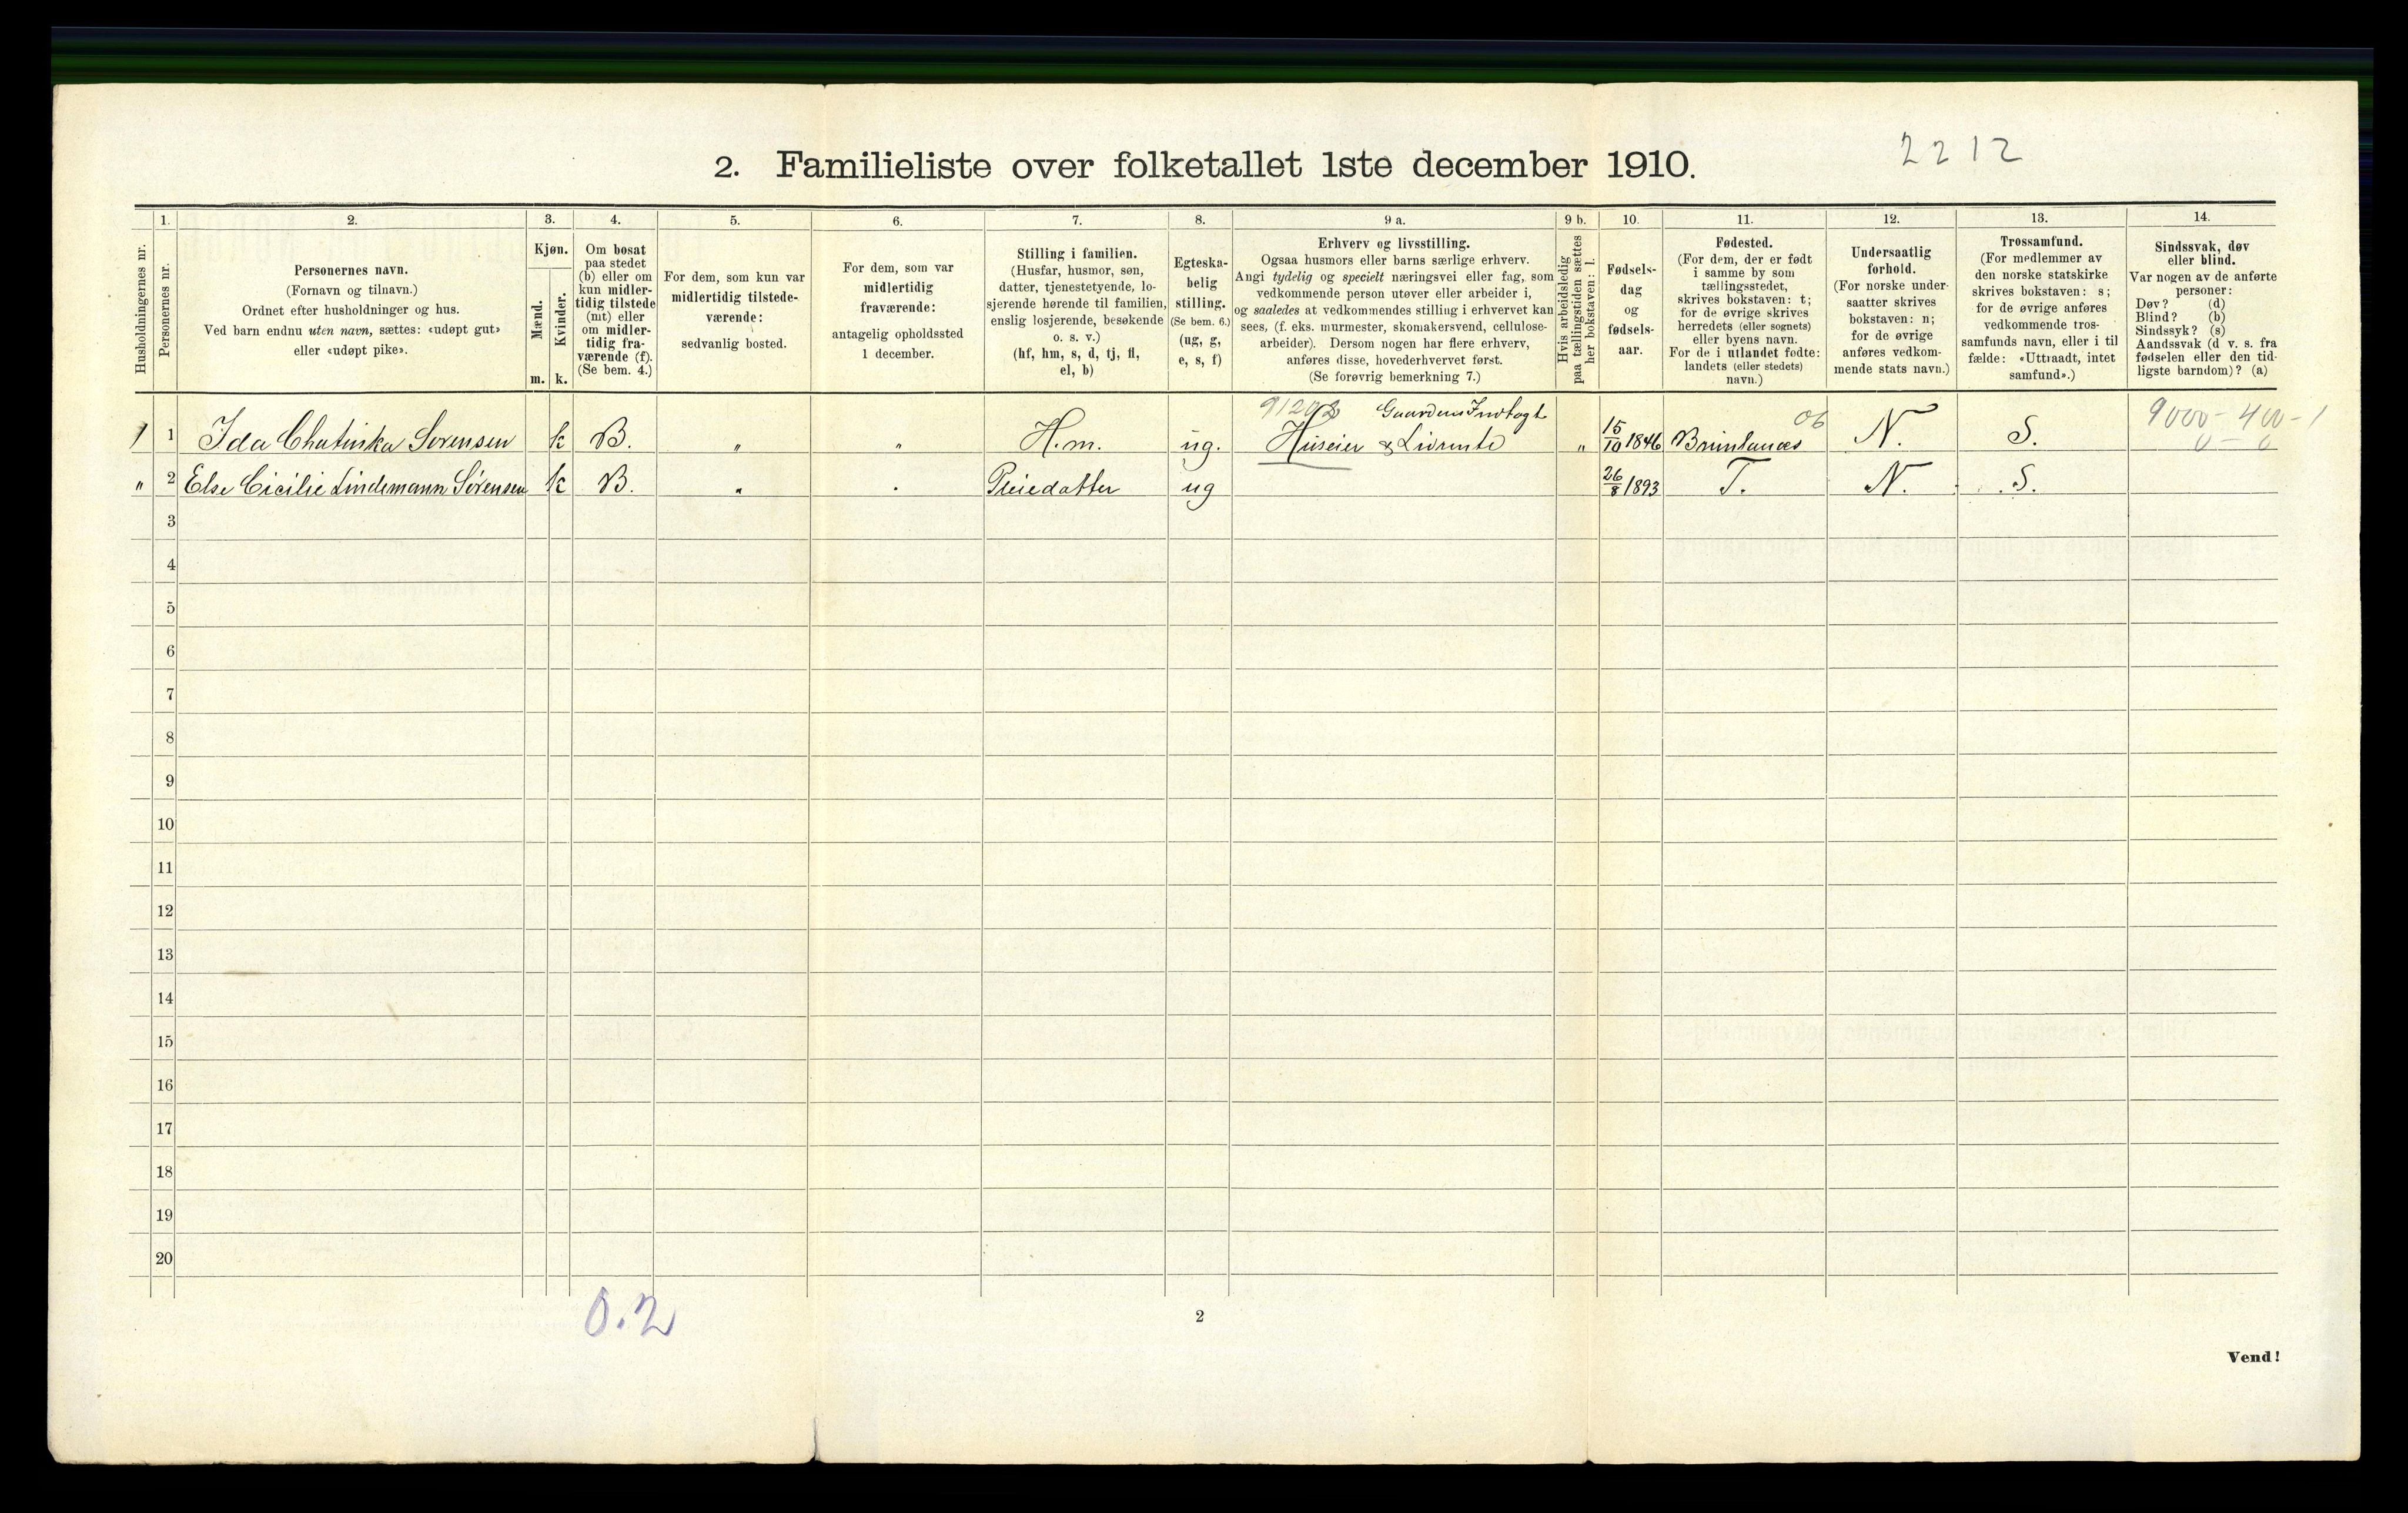 2212
2. Familieliste over folketallet 1ste december 1910.
Husholdningernes nr.
1.
Personernes nr.
2.
Personernes navn.
(Fornavn og tilnavn.)
Ordnet efter husholdninger og hus.
Ved barn endnu uten navn, sættes: «udøpt gut»
eller «udøpt pike».
3.
Kjøn.
Mænd.
m.
Kvinder.
k.
4.
Om bosat
paa stedet
(b) eller om
kun midler-
tidig tilstede
(mt) eller
om midler-
tidig fra-
værende (f).
(Se bem. 4.)
5.
For dem, som kun var
midlertidig tilstede-
værende:
sedvanlig bosted.
6.
For dem, som var
midlertidig
fraværende:
antagelig opholdssted
1 december.
7.
Stilling i familien.
(Husfar, husmor, søn,
datter, tjenestetyende, lo-
sjerende hørende til familien,
enslig losjerende, besøkende
o. s. v.)
(hf, hm, s, d, tj, fl,
el, b)
8.
Egteska-
belig
stilling.
(Se bem. 6.)
(ug, g,
e, s, f)
9 a.
Erhverv og livsstilling.
Ogsaa husmors eller barns særlige erhverv.
Angi tydelig og specielt næringsvei eller fag, som
vedkommende person utøver eller arbeider i,
og saaledes at vedkommendes stilling i erhvervet kan
sees, (f. eks. murmester, skomakersvend, cellulose-
arbeider). Dersom nogen har flere erhverv,
anføres disse, hovederhvervet først.
(Se forøvrig bemerkning 7.)
9 b.
Hvis arbeidsledig
paa tællingstiden sættes
her bokstaven: l.
10.
Fødsels-
dag
og
fødsels-
aar.
11.
Fødested.
(For dem, der er født
i samme by som
tællingsstedet,
skrives bokstaven: t;
for de øvrige skrives
herredets (eller sognets)
eller byens navn.
For de i utlandet fødte:
landets (eller stedets)
navn.)
12.
Undersaatlig
forhold.
(For norske under-
saatter skrives
bokstaven: n;
for de øvrige
anføres vedkom-
mende stats navn.)
13.
Trossamfund.
(For medlemmer av
den norske statskirke
skrives bokstaven: s;
for de øvrige anføres
vedkommende tros-
samfunds navn, eller i til
fælde: «Uttraadt, intet
samfund».)
14.
Sindssvak, døv
eller blind.
Var nogen av de anførte
personer:
Døv? (d)
Blind? (b)
Sindssyk? (s)
Aandssvak (d v. s. fra
fødselen eller den tid-
ligste barndom)? (a)
Gaardens Indtægt 06 9000 - 400 - 1
1 1 Ida Chatinka Sørensen k B. " " H.m. ug. Huseier & Livrente " 15/10 1846 Brunlanæs N. S. 0 - 0
" 2 Else Cicilie Lindemann Sørensen k B. " " Pleiedatter ug 26/8 1893 T. N. S.
3
4
5
6
7
8
9
10
11
12
13
14
15
16
17
18
19
20
0.2
2
Vend!